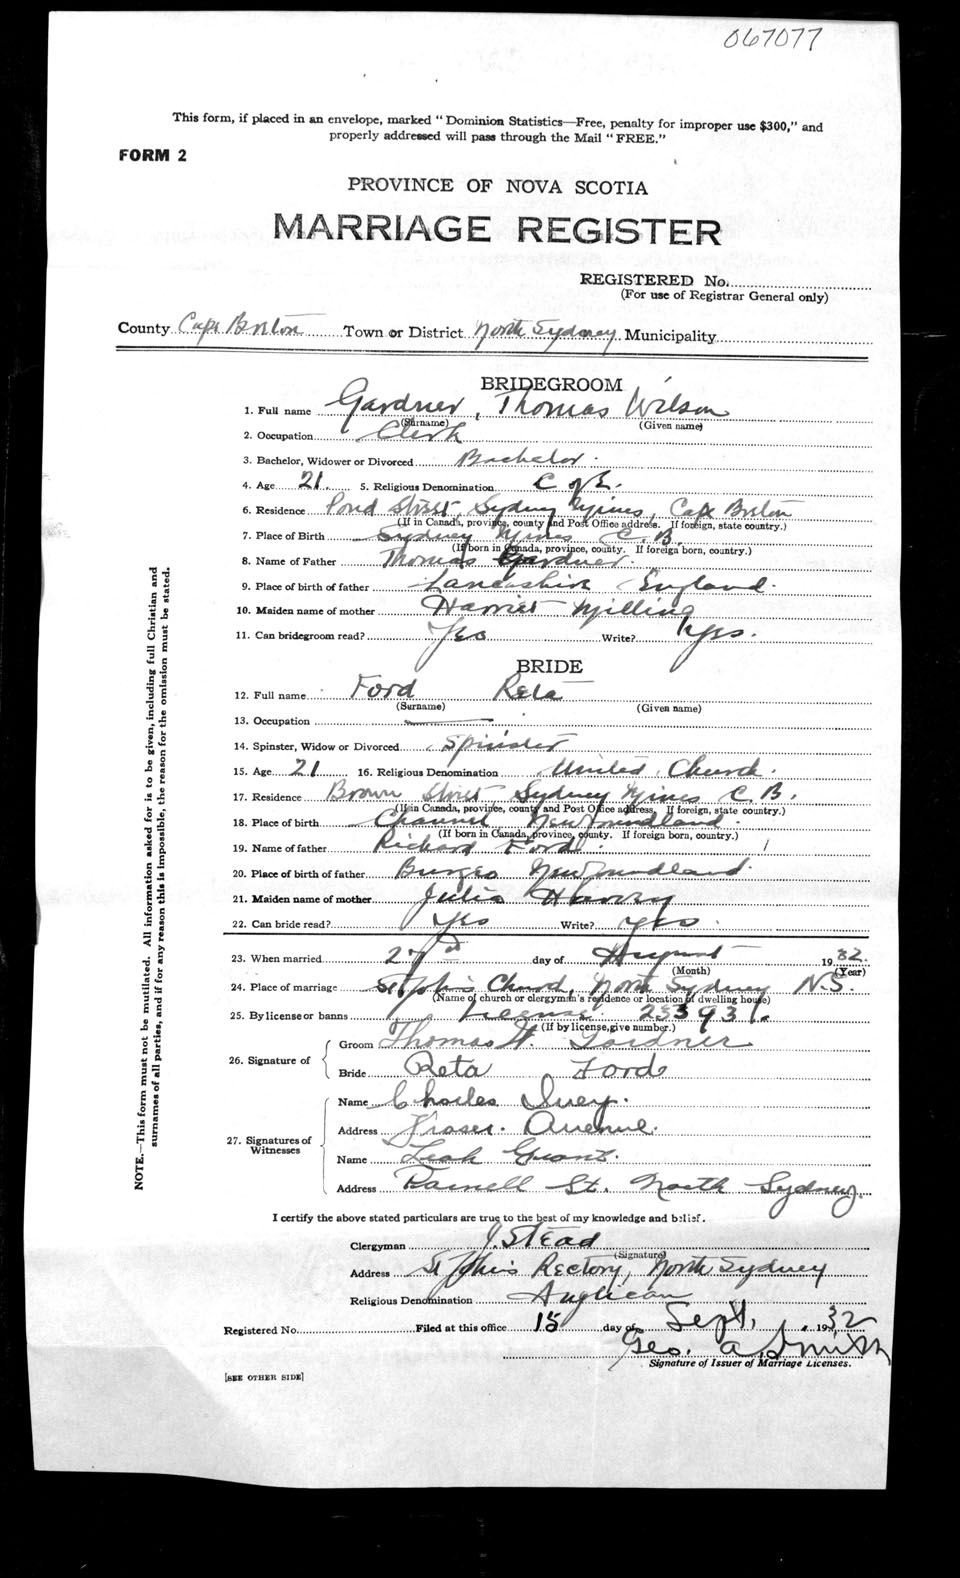 067077
This form, if placed in an envelope, marked "Dominion Statistics—Free, penalty for improper use $300," and
properly addressed will pass through the Mail "FREE."
FORM 2
PROVINCE OF NOVA SCOTIA
MARRIAGE REGISTER
REGISTERED No.
(For use of Registrar General only)
County Cape Breton Town or District North Sydney Municipality
BRIDEGROOM
1. Full name Gardner, Thomas Wilson
(Surname) (Given name)
2. Occupation Clerk
3. Bachelor, Widower or Divorced Bachelor.
4. Age 21 5. Religious Denomination C of E.
6. Residence Pond Street, Sydney Mines, Cape Breton
(If in Canada, province, county and Post Office address. If foreign, state country.)
7. Place of Birth Sydney Mines C.B.
(If born in Canada, province, county. If foreign born, country.)
8. Name of Father Thomas Gardner.
9. Place of birth of father Lancashire England.
10. Maiden name of mother Harriet Milling
11. Can bridegroom read? Yes Write? Yes.
BRIDE
12. Full name Ford Reta
(Surname) (Given name)
13. Occupation —
14. Spinster, Widow or Divorced Spinster
15. Age 21 16. Religious Denomination United Church.
17. Residence Brown Street Sydney Mines C.B.
(If in Canada, province, county and Post Office address. If foreign, state country.)
18. Place of birth Channel Newfoundland.
(If born in Canada, province, county. If foreign born, country.)
19. Name of father Richard Ford.
20. Place of birth of father Burgeo Newfoundland.
21. Maiden name of mother Julia Harvey
22. Can bride read? Yes Write? Yes.
23. When married day of August 1932.
(Month) (Year)
24. Place of marriage St John's Church, North Sydney N.S.
(Name of church or clergyman's residence or location of dwelling house)
25. By license or banns License. 253931.
(If by license, give number.)
26. Signature of Groom Thomas W. Gardner
Bride Reta Ford
27. Signatures of Witnesses
Name Charles Ivey.
Address Fraser Avenue.
Name Leah Grant.
Address St. North Sydney.
I certify the above stated particulars are true to the best of my knowledge and belief.
Clergyman J. Stead
(Signature)
Address St John's Rectory, North Sydney
Religious Denomination Anglican
Registered No. Filed at this office 15 day of Sept. 1932
Geo. A. Smith
Signature of Issuer of Marriage Licenses.
[SEE OTHER SIDE]
NOTE.—This form must not be mutilated. All information asked for is to be given, including full Christian and
surnames of all parties, and if for any reason this is impossible, the reason for the omission must be stated.